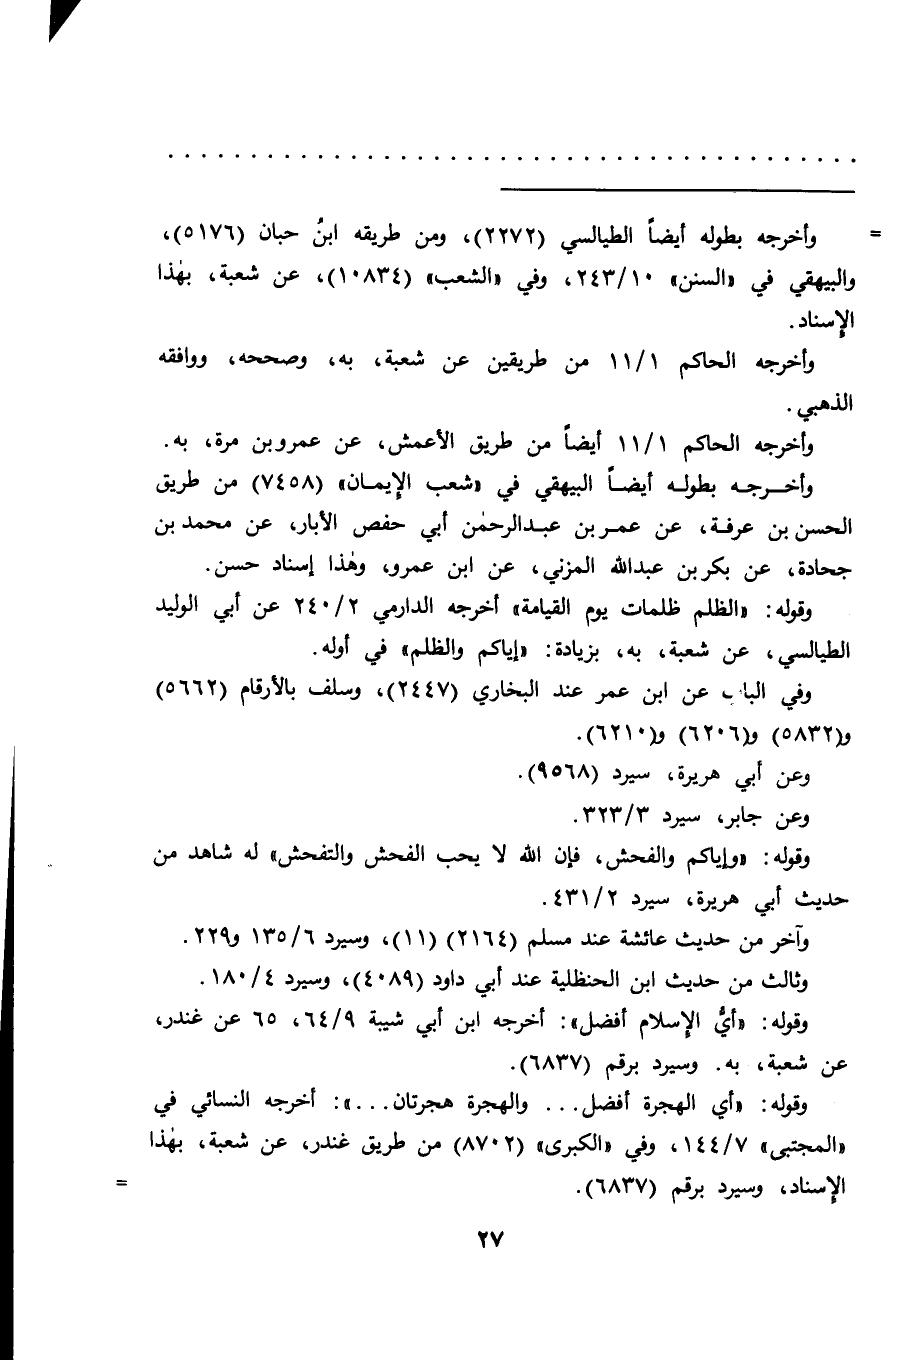 = وأخرجه بطوله أيضاً الطيالسي (٢٢٧٢)، ومن طريقه ابنُ حبان (٥١٧٦)،
والبيهقي في «السنن» ٢٤٣/١٠، وفي «الشعب» (١٠٨٣٤)، عن شعبة، بهٰذا
الإِسناد.
وأخرجه الحاكم ١١/١ من طريقين عن شعبة، به، وصححه، ووافقه
الذهبي.
وأخرجه الحاكم ١١/١ أيضاً من طريق الأعمش، عن عمرو بن مرة، به.
وأخرجه بطوله أيضاً البيهقي في «شعب الإِيمان» (٧٤٥٨) من طريق
الحسن بن عرفة، عن عمر بن عبدالرحمٰن أبي حفص الأبار، عن محمد بن
جحادة، عن بكر بن عبدالله المزني، عن ابن عمرو، وهٰذا إسناد حسن.
وقوله: «الظلم ظلمات يوم القيامة» أخرجه الدارمي ٢٤٠/٢ عن أبي الوليد
الطيالسي، عن شعبة، به، بزيادة: «إياكم والظلم» في أوله.
وفي الباب عن ابن عمر عند البخاري (٢٤٤٧)، وسلف بالأرقام (٥٦٦٢)
و(٥٨٣٢) و(٦٢٠٦) و(٦٢١٠).
وعن أبي هريرة، سيرد (٩٥٦٨).
وعن جابر، سيرد ٣٢٣/٣.
وقوله: «وإياكم والفحش، فإن الله لا يحب الفحش والتفحش» له شاهد من
حديث أبي هريرة، سيرد ٤٣١/٢.
وآخر من حديث عائشة عند مسلم (٢١٦٤) (١١)، وسيرد ١٣٥/٦ و٢٢٩.
وثالث من حديث ابن الحنظلية عند أبي داود (٤٠٨٩)، وسيرد ١٨٠/٤.
وقوله: «أيُّ الإِسلام أفضل»: أخرجه ابن أبي شيبة ٦٤/٩، ٦٥ عن غندر،
عن شعبة، به. وسيرد برقم (٦٨٣٧).
وقوله: «أي الهجرة أفضل... والهجرة هجرتان...»: أخرجه النسائي في
«المجتبى» ١٤٤/٧، وفي «الكبرى» (٨٧٠٢) من طريق غندر، عن شعبة، بهٰذا
الإِسناد، وسيرد برقم (٦٨٣٧). =
٢٧